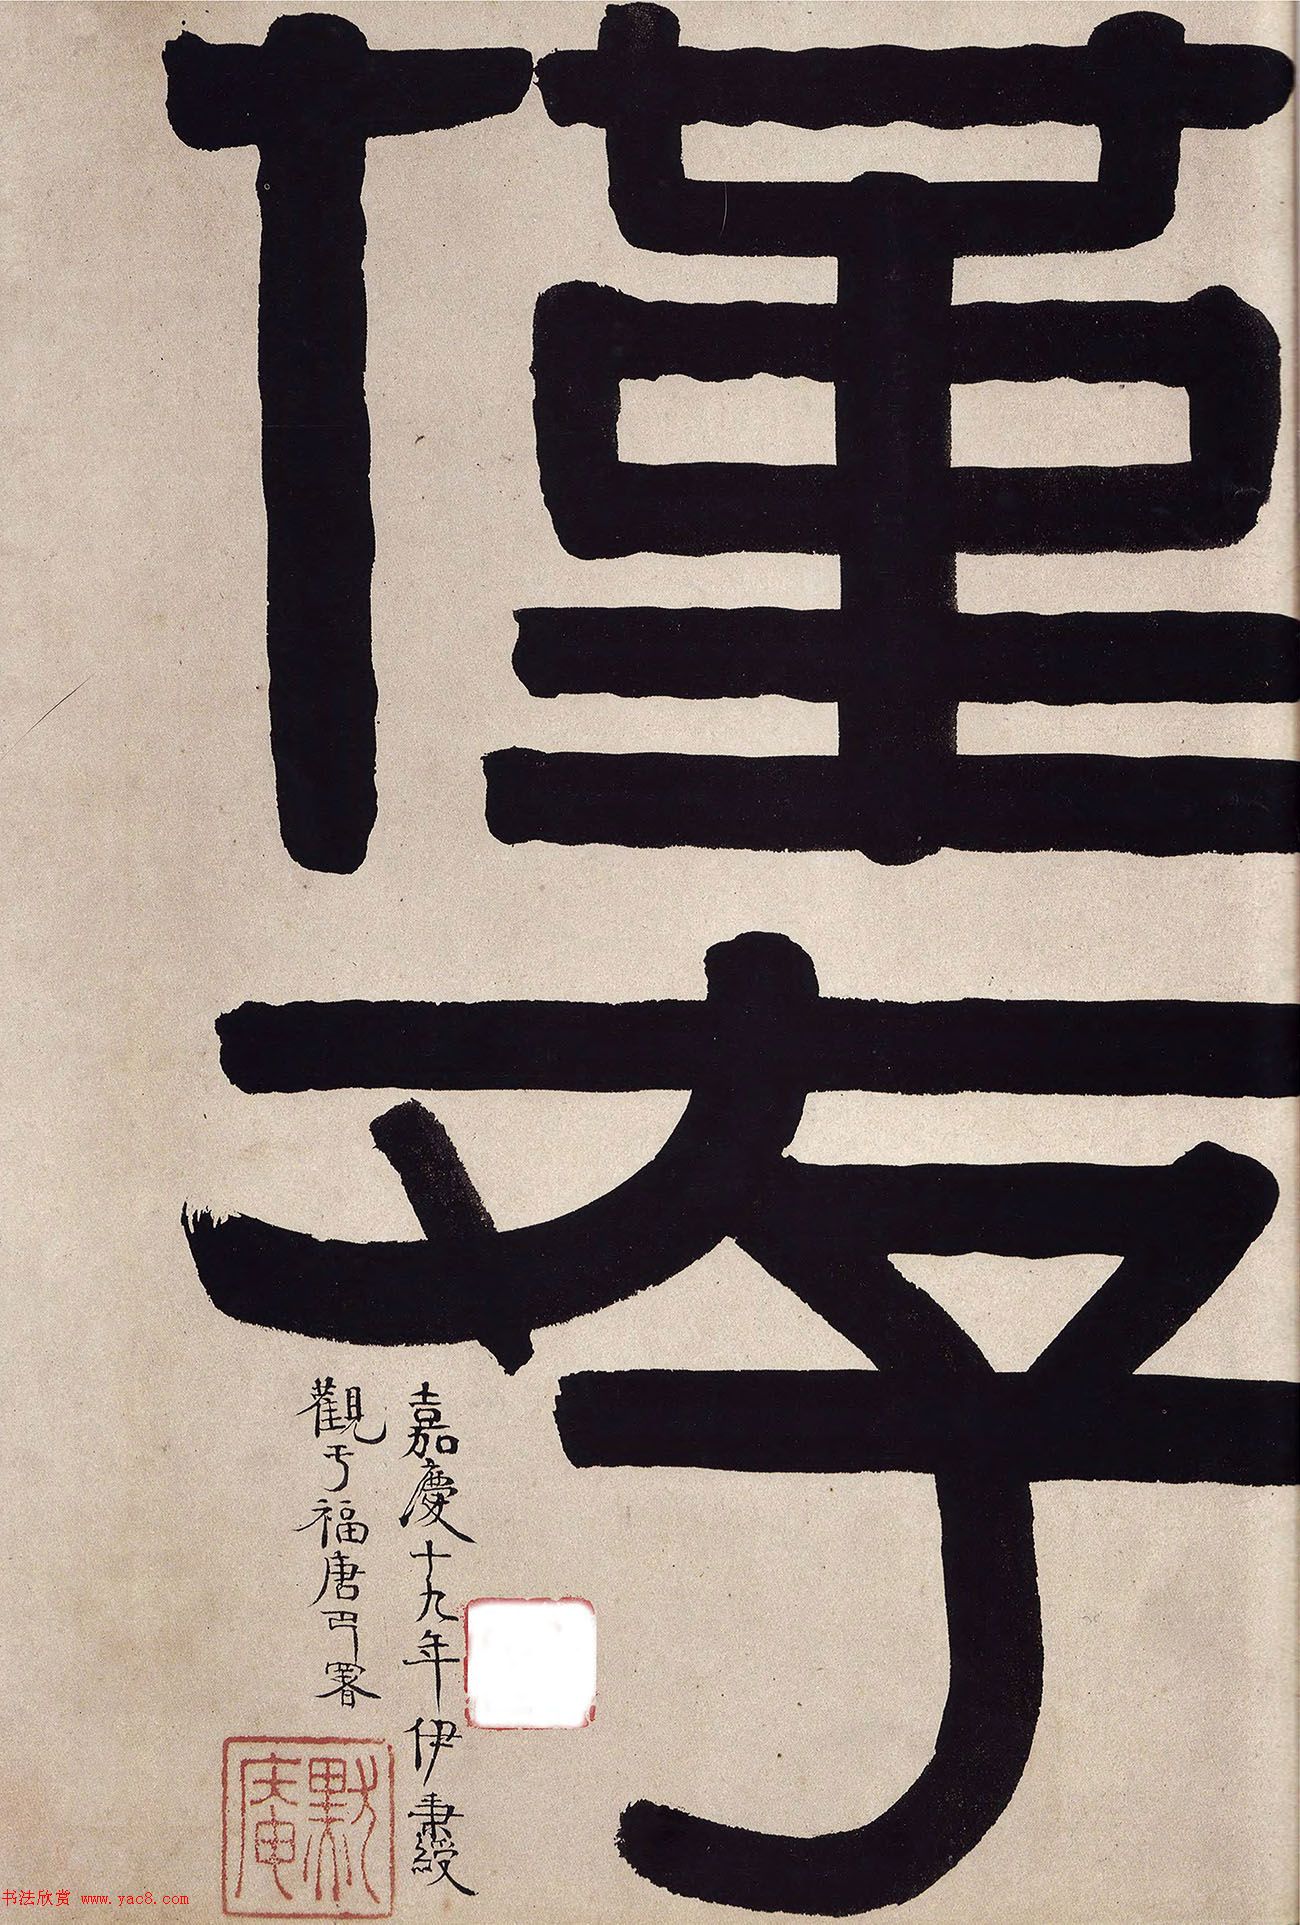 僅存
嘉慶十九年伊秉綬
觀于福唐署
默庵
书法欣赏 www.yac8.com